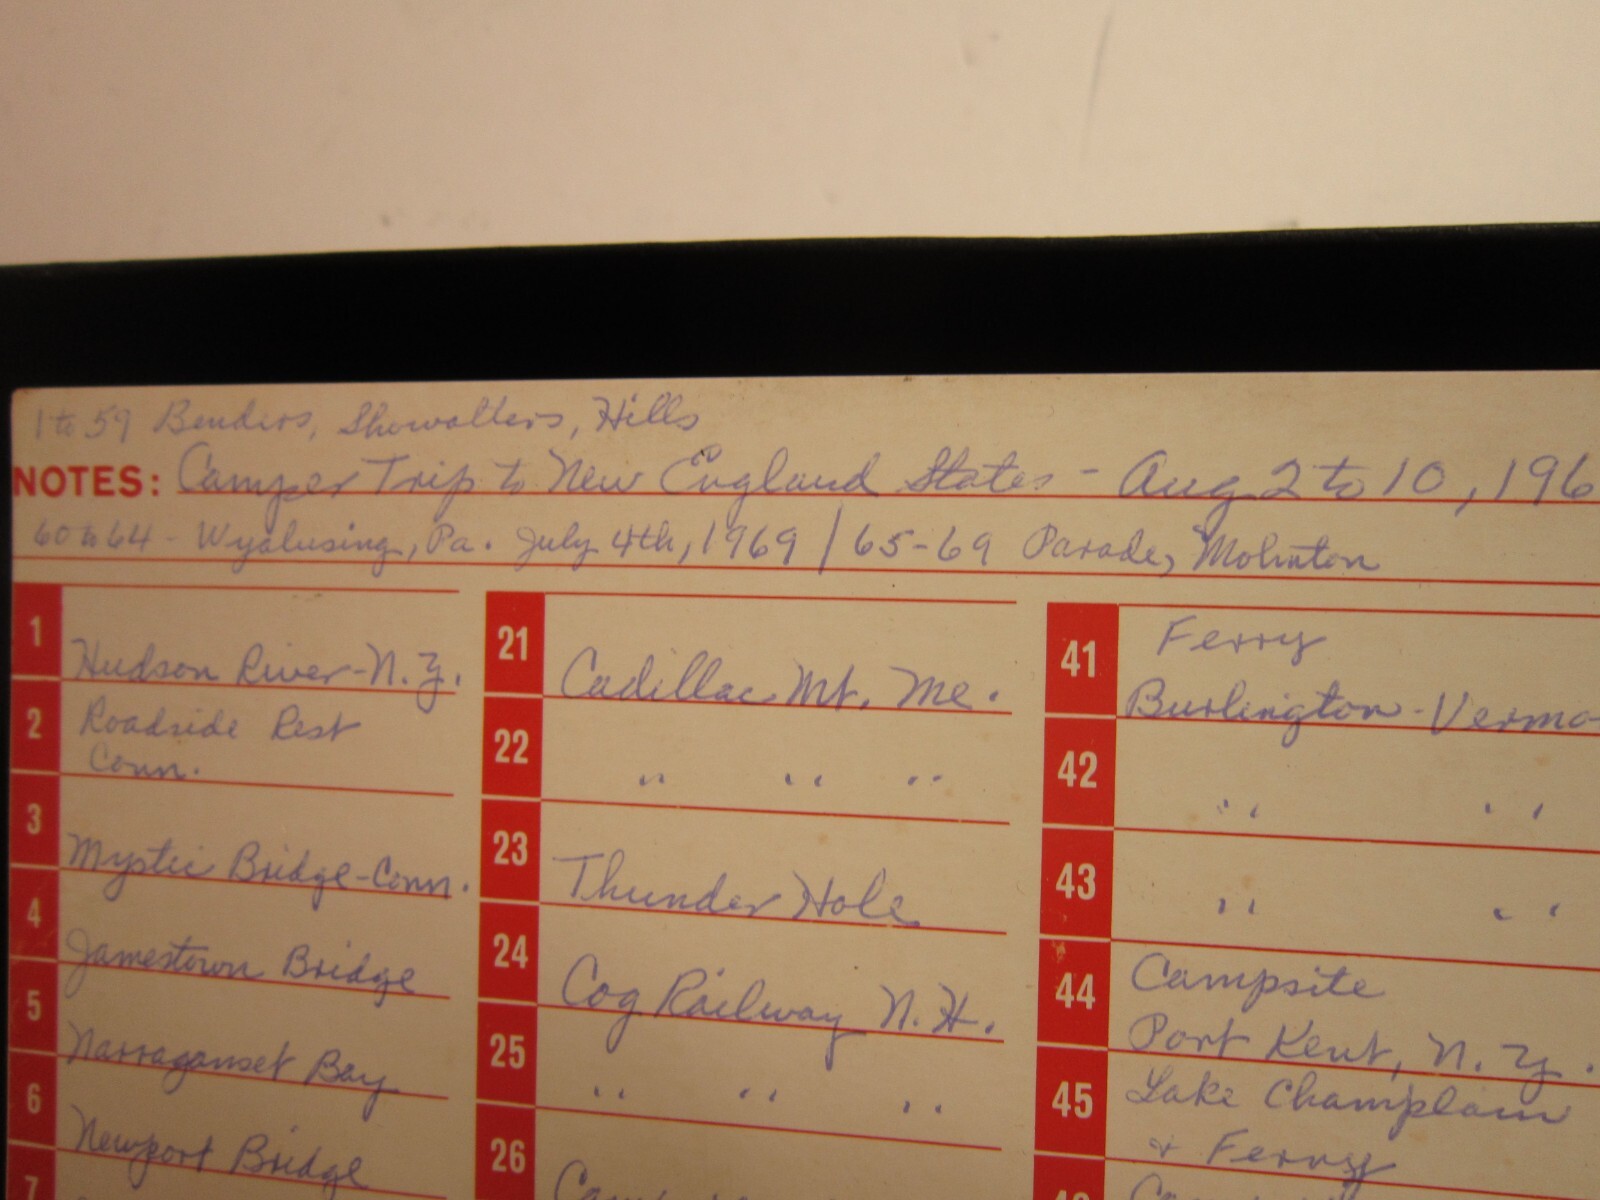 1 to 59 Benders, Showalters, Hills
NOTES: Camper Trip to New England States - Aug 2 to 10, 196
60 to 64 - Wyalusing, Pa. July 4th, 1969 / 65-69 Parade, Mohnton
1 Hudson River-N.Y.
2 Roadside Rest
Conn.
3 Mystic Bridge-Conn.
4 Jamestown Bridge
5 Narraganset Bay
6 Newport Bridge
7
21 Cadillac Mt. Me.
22 " " "
23 Thunder Hole
24 Cog Railway N.H.
25 " " "
26
41 Ferry
Burlington-Vermo
42 " "
43 " "
44 Campsite
Port Kent, N.Y.
45 Lake Champlain
& Ferry